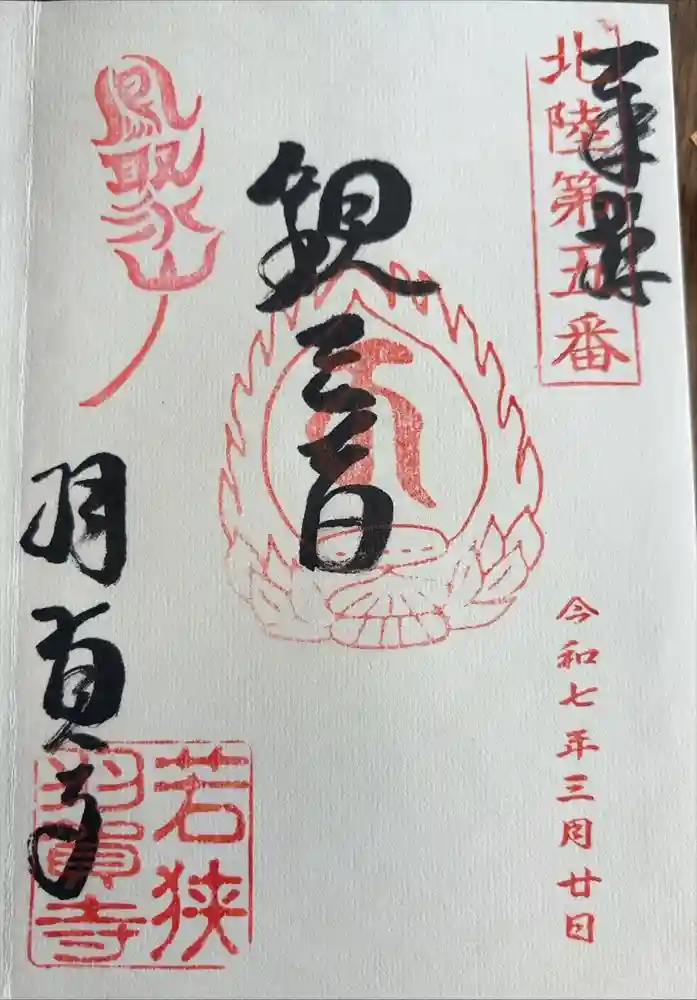 奉拝
北陸第五番
令和七年三月廿日
観音
鳳聚山
羽賀寺
若狭
羽賀寺